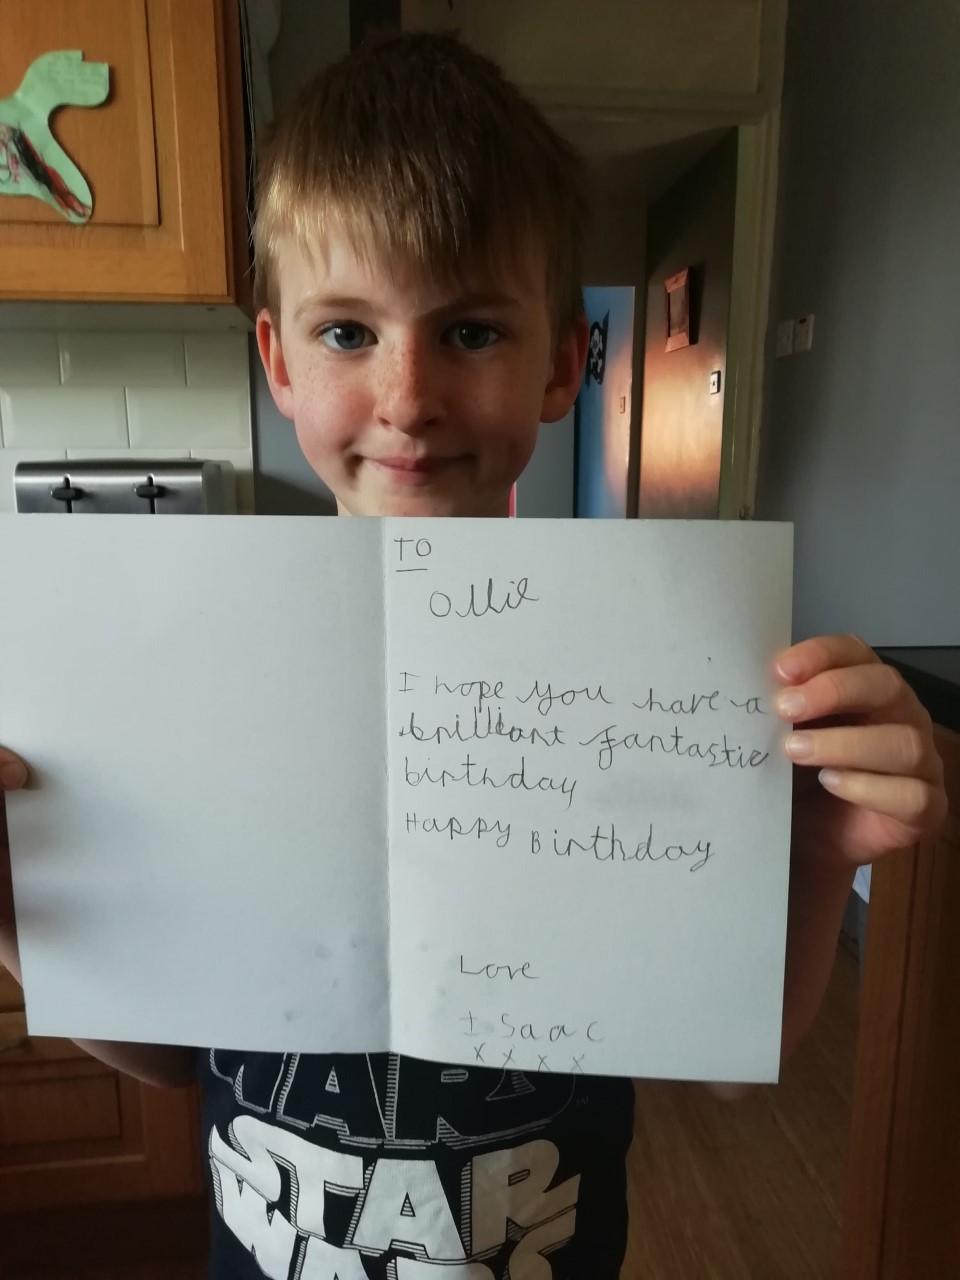 TO
Ollie
I hope you have a
brilliant fantastic
birthday
Happy Birthday
Love
Isaac
x x x x
WARS
STAR
WARS